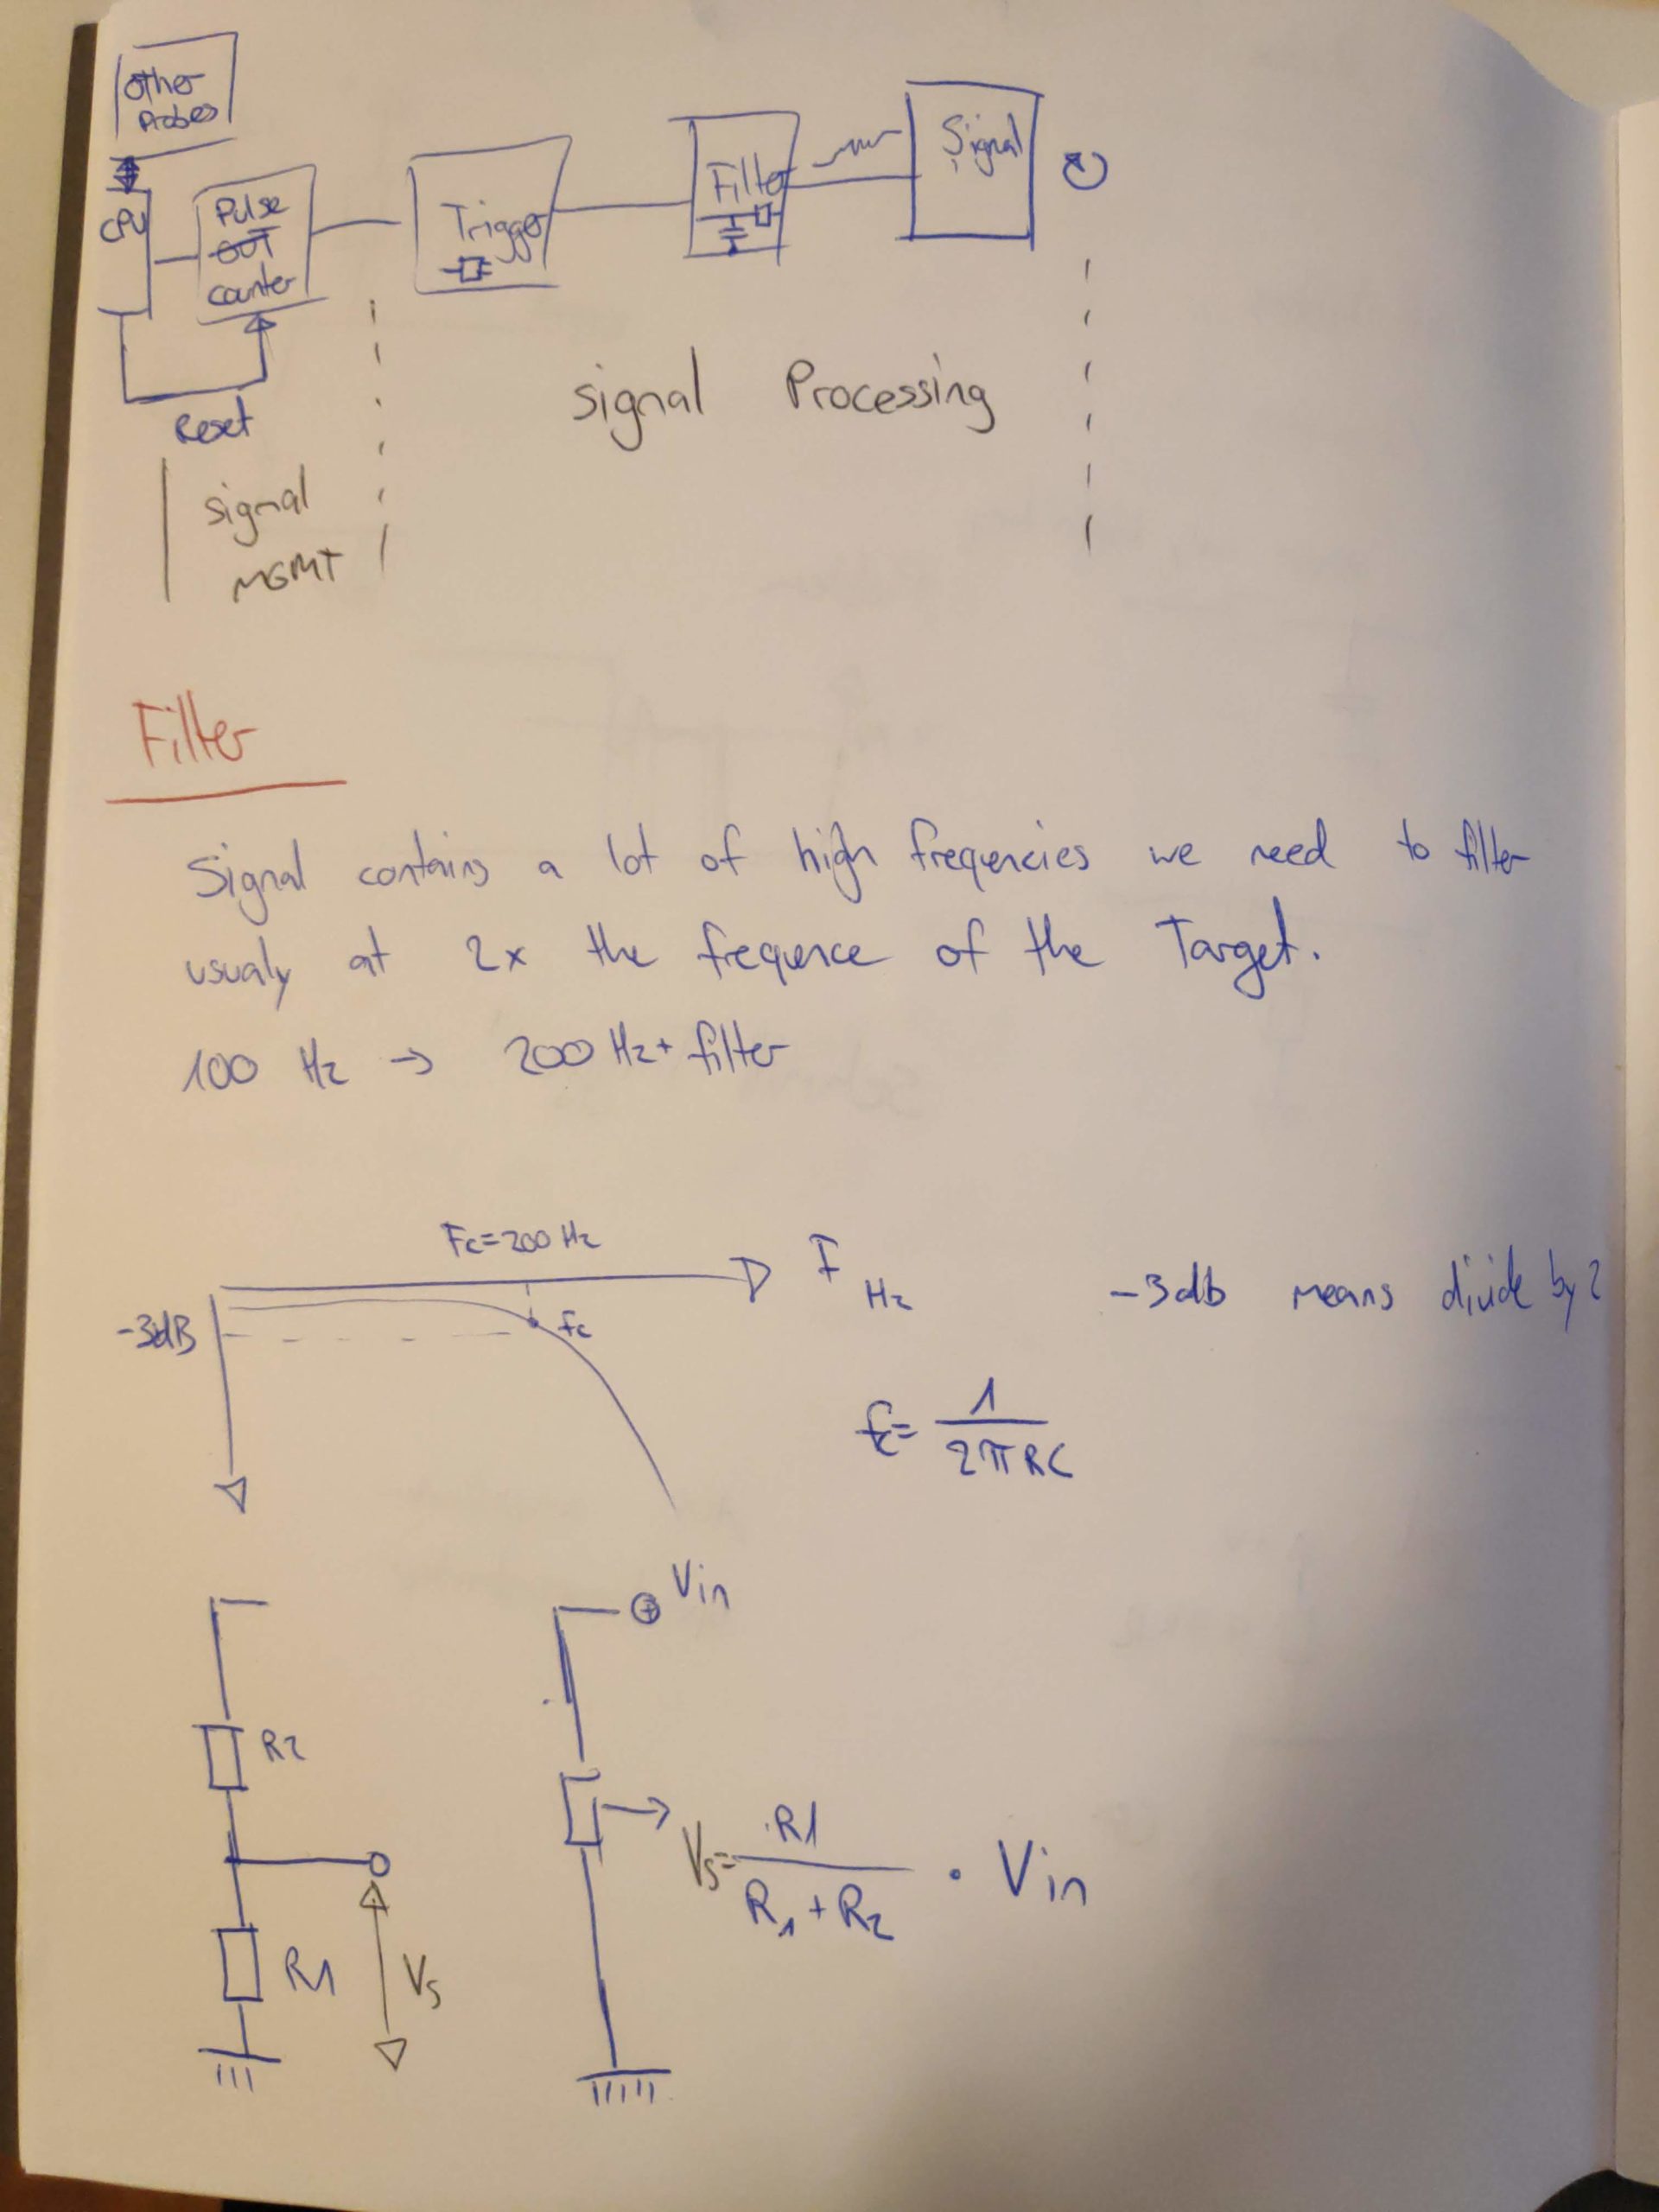 Other
Probes
CPU
Pulse
OUT
counter
Trigger
Filter
Signal
Reset
signal Processing
signal
MGMT
Filter
Signal contains a lot of high frequencies we need to filter
usualy at 2x the frequence of the Target.
100 Hz → 200 Hz+ filter
Fc=200 Hz
F Hz
-3dB
fc
-3db means divide by 2
fc= 1
2πRC
Vin
R2
R1
Vs
Vs= R1
R1+R2
· Vin